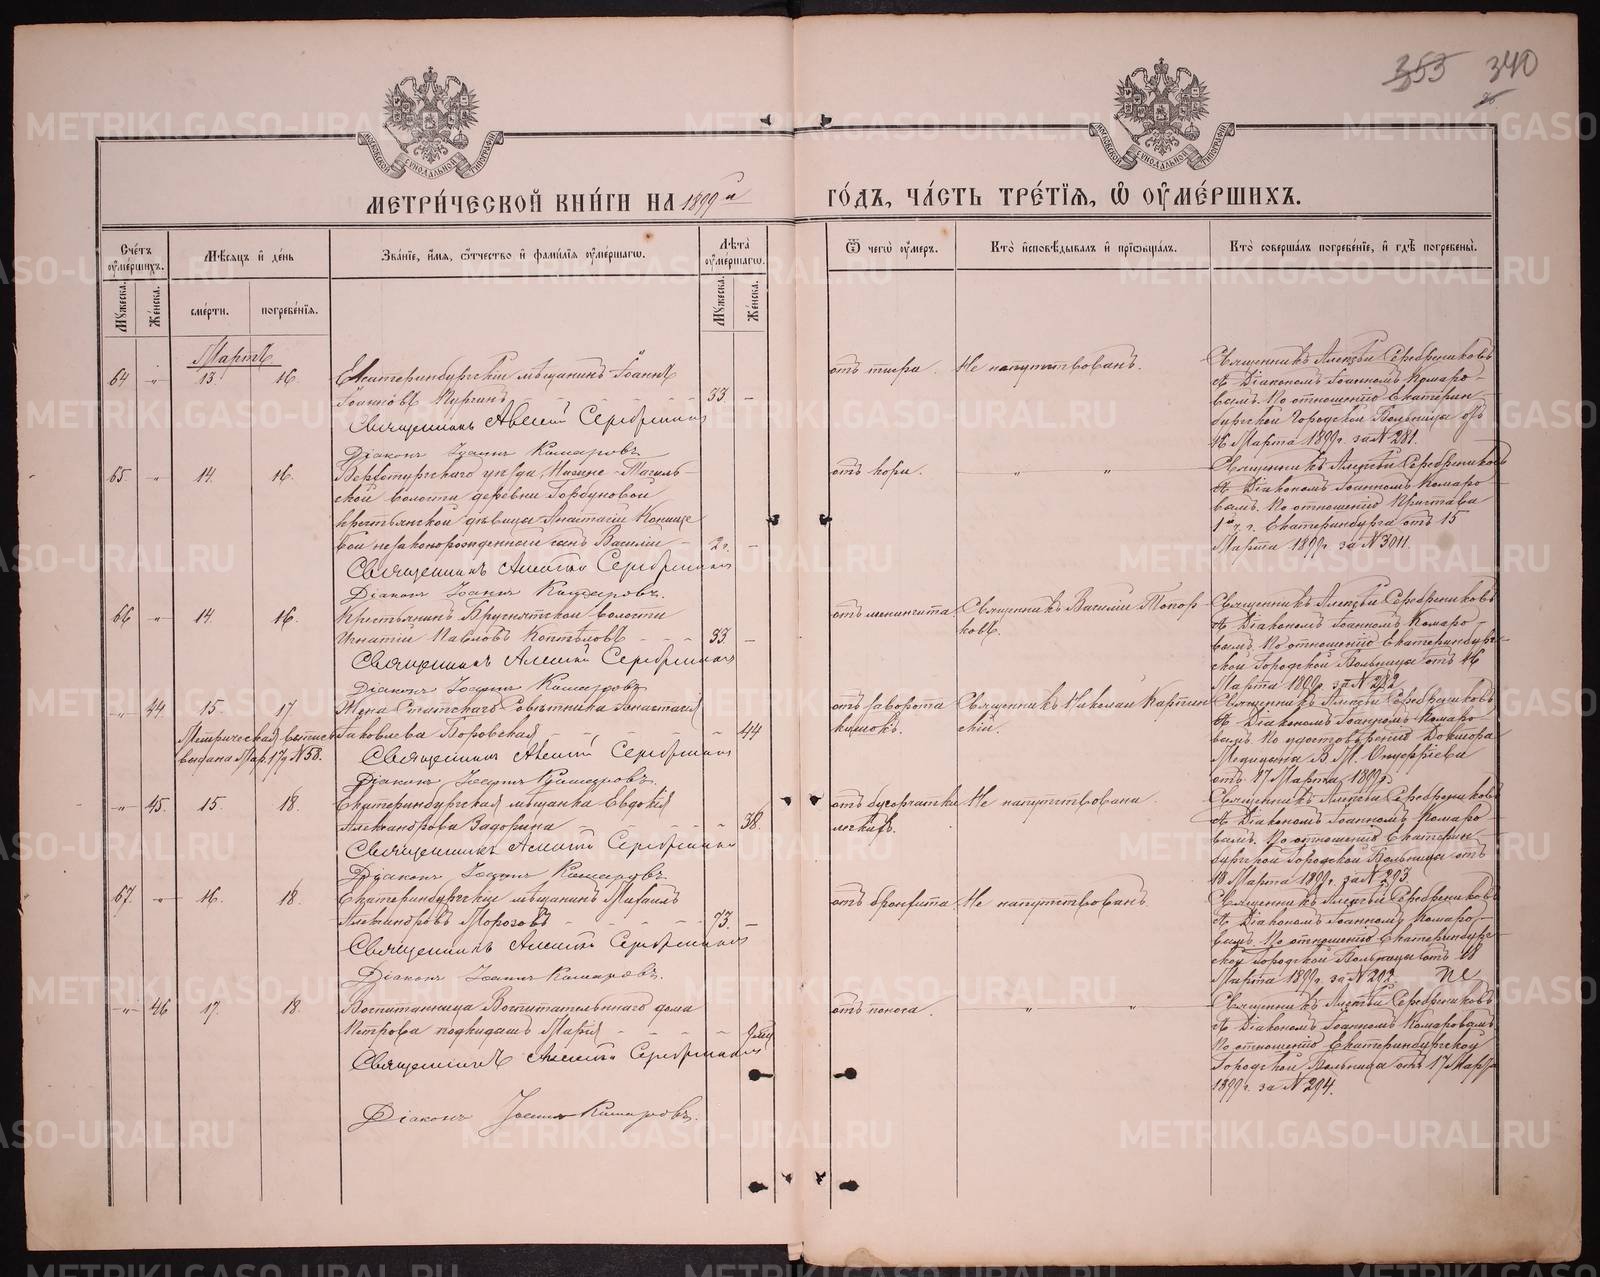 353 340
МЕТРИ́ЧЕСКОЙ КНИ́ГИ НА 1899й ГО́ДЪ, ЧА́СТЬ ТРЕ́ТЇѦ, Ѡ ОУМЕ́РШИХЪ.
Сче́тъ оумершихъ.
Мѣсѧцъ и день
Зва́нїе, и́мѧ, ѻ́тчество и фами́лїѧ оуме́ршагѡ.
Лѣта оумершагѡ.
Ѿ чегѡ оумеръ.
Кто исповѣдывалъ и прїѡбщалъ.
Кто совершалъ погребенїе, и гдѣ погребены.
Мужеска.
Женска.
смерти.
погребенїѧ.
Мужеска.
Женска.
Мартъ
64 " 13 16.
Екатеринбургскій мѣщанинъ Іоаннъ
Іоанновъ Кургинъ 33 —
Священникъ Алексій Серебренниковъ
Діаконъ Іоаннъ Комаровъ
отъ тифа.
Не напутствованъ.
Священникъ Алексѣй Серебрениковъ
съ Діакономъ Іоанномъ Комаро-
вымъ. По отношенію Екатерин-
бургской Городской Больницы отъ
16 Марта 1899г. за № 281.
65 " 14. 16.
Верхотурскаго уѣзда, Нижне-Тагиль-
ской волости деревни Горбуновой
крестьянской дѣвицы Анастасіи
незаконорожденный сынъ Василій — 2г. —
Священникъ Алексій Серебренниковъ
Діаконъ Іоаннъ Комаровъ.
отъ кори.
" "
Священникъ Алексѣй Серебрениковъ
съ Діакономъ Іоанномъ Комаро-
вымъ. По отношенію Пристава
1й ч. г. Екатеринбурга отъ 15
Марта 1899г. за № 3011.
66 " 14. 16.
Крестьянинъ Бруснятской волости
Игнатій Павловъ Коптѣловъ 33. —
Священникъ Алексій Серебренниковъ
Діаконъ Іоаннъ Комаровъ
отъ менингита.
Священникъ Василій Топор-
ковъ.
Священникъ Алексѣй Серебрениковъ
съ Діакономъ Іоанномъ Комаро-
вымъ. По отношенію Екатеринбург-
ской Городской Больницы отъ 16
Марта 1899г. за № 282.
" 44 15. 17
Метрическая выпись
выдана Мар. 17 г. № 58.
Жена Статскаго Совѣтника Анастасія
Іаковлева Боровская 44
Священникъ Алексій Серебренниковъ
Діаконъ Іоаннъ Комаровъ.
отъ заворота
кишокъ.
Священникъ Николай Карпин
скій.
Священникъ Алексѣй Серебрениковъ
съ Діакономъ Іоанномъ Комаро-
вымъ. По удостовѣренію Доктора
Медицины В. М. Онуфріева
отъ 17 Марта 1899г.
" 45. 15. 18.
Екатеринбургская мѣщанка Евдокія
Александрова Задорина 38.
Священникъ Алексій Серебренниковъ
Діаконъ Іоаннъ Комаровъ.
отъ бугорчатки
легкихъ.
Не напутствована.
Священникъ Алексѣй Серебрениковъ
съ Діакономъ Іоанномъ Комаро-
вымъ. По отношенію Екатерин-
бургской Городской Больницы отъ
18 Марта 1899г. за № 293.
67. " 16. 18.
Екатеринбургскій мѣщанинъ Михаилъ
Александровъ Морозовъ 73. —
Священникъ Алексій Серебренниковъ
Діаконъ Іоаннъ Комаровъ.
отъ бронхита.
Не напутствованъ.
Священникъ Алексѣй Серебрениковъ
съ Діакономъ Іоанномъ Комаро-
вымъ. По отношенію Екатеринбург-
ской Городской Больницы отъ 18
Марта 1899г. за № 292.
" 46 17. 18.
Воспитанница Воспитательнаго дома
Петрова подкидышъ Марія 9 мѣс
Священникъ Алексій Серебренниковъ
Діаконъ Іоаннъ Комаровъ.
отъ поноса.
" "
Священникъ Алексѣй Серебрениковъ
съ Діакономъ Іоанномъ Комаровымъ.
По отношенію Екатеринбургской
Городской Больницы отъ 17 Марта
1899г. за № 294.